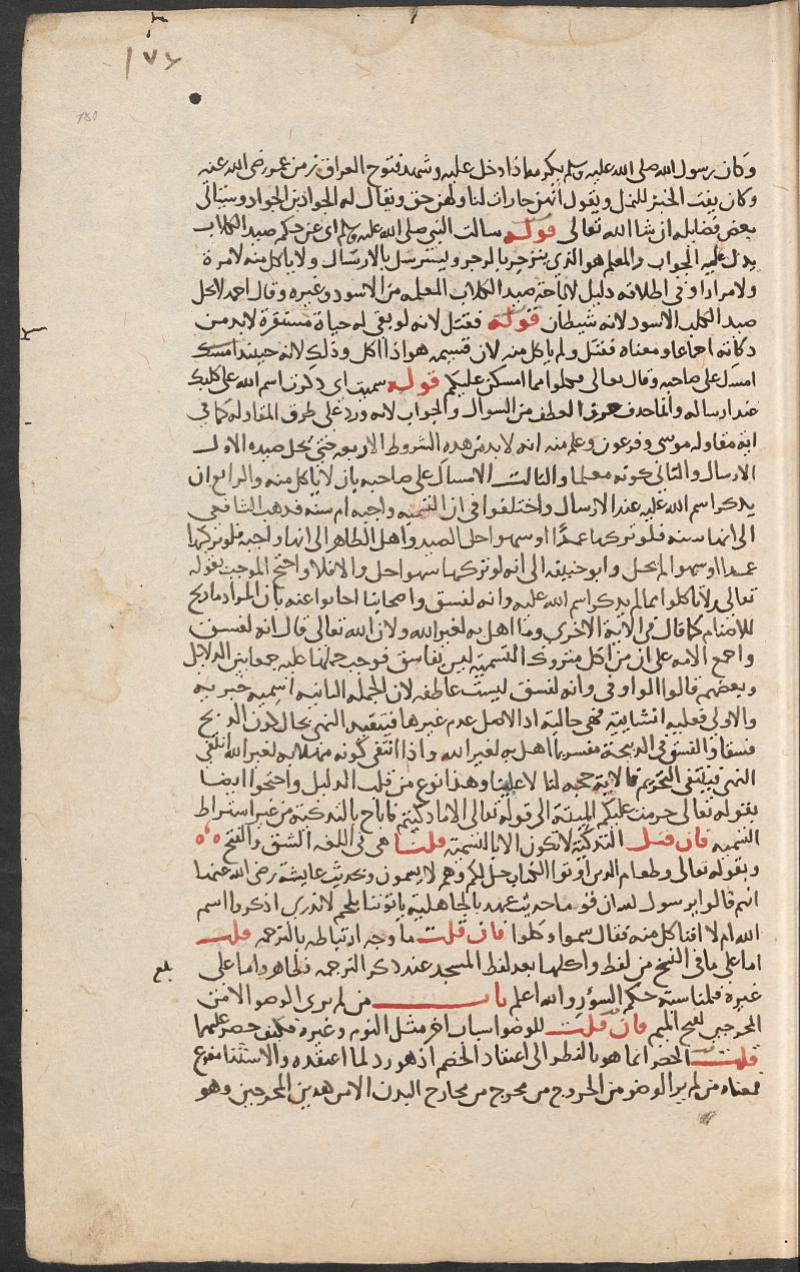 ١٧٦
180
وكان رسول الله صلى الله عليه وسلم يكرمه اذا دخل عليه وشهد فتوح العراق زمن عمر رضي الله عنه
وكان يفت الخبز للنمل ويقول انهن جارات لنا ولهن حق ويقال له الجواد بن الجواد وسياتي
بعض فضايله ان شا الله تعالى قوله سالت النبي صلى الله عليه وسلم اي عن حكم صيد الكلاب
يدل عليه الجواب والمعلم هو الذي ينزجر بالزجر ويسترسل بالارسال ولا ياكل منه لا مرة
ولا مرارا وفي اطلاقه دليل لاباحة صيد الكلاب المعلمه من الاسود وغيره وقال احمد لا يحل
صيد الكلب الاسود لانه شيطان قوله فقتل لانه لو بقي له حياة مستقرة لابد من
ذكاته اجماعا ومعناه فقتل ولم ياكل منه لان قسيمه هو اذا اكل وذلك لانه حينئذ امسك
امسك على صاحبه وقال تعالى فكلوا مما امسكن عليكم قوله سميت اي ذكرت اسم الله على كلبك
عند ارساله وانما حذف حرف العطف من السوال والجواب لانه ورد على طرف المقاوله كما في
اية مقاوله موسى وفرعون وعلم منه انه لابد من هذه الشروط الاربعه حتى يحل صيده الاول
الارسال والثاني كونه معلما والثالث الامساك على صاحبه بان لا ياكل منه والرابع ان
يذكر اسم الله عليه عند الارسال واختلفوا في ان التسميه واجبه ام سنه فذهب الشافعي
الى انها سنه فلو تركها عمدا او سهوا حل الصيد واهل الظاهر الى انها واجبة فلو تركها
عمدا او سهوا لم يحل وابو حنيفه الى انه لو تركها سهوا حل والا فلا واحتج الموجب بقوله
تعالى ولا تاكلوا مما لم يذكر اسم الله عليه وانه لفسق واصحابنا اجابوا عنه بان المراد ما ذبح
للاصنام كما قال في الاية الاخرى وما اهل به لغير الله ولان الله تعالى قال انه لفسق
واجمع الامه على ان من اكل متروك التسميه ليس بفاسق فوجب حملها عليه جمعا بين الدلايل
وبعضهم قالوا الواو في وانه لفسق ليست عاطفه لان الجمله الثانيه اسميه خبريه
والاولى فعليه انشاييه فهي حاليه اذ الاصل عدم غيرها فيتقيد النهي بحال كون الذبح
فسقا والفسق في الذبيحة مفسر بما اهل به لغير الله واذا انتفى كونه مهلا به لغير الله انتفى
النهي فينتفى التحريم فالاية حجه لنا لا علينا وهذا نوع من قلب الدليل واحتجوا ايضا
بقوله تعالى حرمت عليكم الميتة الى قوله تعالى الا ما ذكيتم فاباح بالتذكية من غير اشتراط
التسميه فان قيل التذكية لا تكون الا بالتسمية قلنا هي في اللغه الشق والفتح
وبقوله تعالى وطعام الذين اوتوا الكتاب حل لكم وهم لا يسمون وبحديث عايشة رضي الله عنها
انهم قالوا يا رسول الله ان قوما حديث عهد بالجاهلية ياتوننا بلحم لا ندري اذكروا اسم
الله ام لا افناكل منه فقال سموا وكلوا فان قلت ما وجه ارتباطه بالترجمه قلت
اما على ما في النسخ من لفظ واكلها بعد لفظ المسجد عند ذكر الترجمه فظاهر واما على
بلغ
غيره فلمناسبته حكم السؤر والله اعلم باب من لم يرى الوضو الا من
المخرجين بفتح الميم فان قلت للوضو اسباب اخر مثل النوم وغيره فكيف حصر عليهما
قلت الحصر انما هو بالنظر الى اعتقاد الخصم اذ هو رد لما اعتقده والاستثنا مفرغ
فمعناه من لم ير الوضو من الخروج من مخرج من مخارج البدن الا من هذين المخرجين وهو